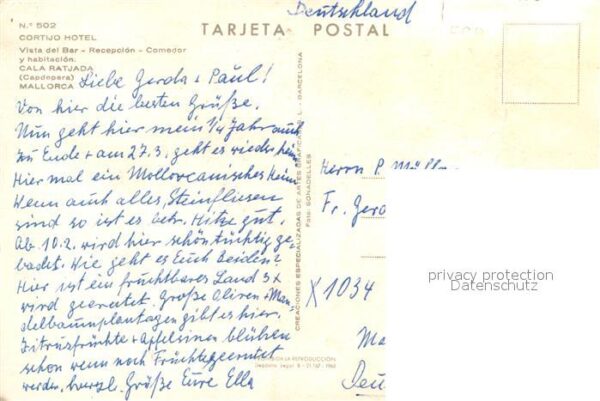 Deutschland
N.º 502
TARJETA POSTAL
CORTIJO HOTEL
Vista del Bar - Recepción - Comedor
y habitación.
CALA RATJADA
(Capdepera)
MALLORCA
Liebe Gerda + Paul!
Von hier die besten Grüße.
Nun geht hier mein 1/4 Jahr auch
zu Ende + am 27.3. geht es wieder heim
Hier mal ein Mollorcanisches Heim
Wenn auch alles Steinfliesen
sind so ist es betr. Hitze gut.
Ab 10.2. wird hier schon tüchtig ge-
badet. Wie geht es Euch beiden?
Hier ist ein fruchtbares Land 3x
wird geerntet. Große Oliven + Man-
delbaumplantagen gibt es hier.
Zitrusfrüchte + Apfelsinen blühen
schon wenn noch Früchte geerntet
werden, herzl. Grüße Eure Ella
CREACIONES ESPECIALIZADAS DE ARTES GRAFICAS, S. L. - BARCELONA
Foto: SONADELLES
PROHIBIDA LA REPRODUCCIÓN
Depósito Legal B - 21.167 - 1962
Herrn P. Müll
Fr. Gerd
X1034
Ma
Deu
privacy protection
Datenschutz